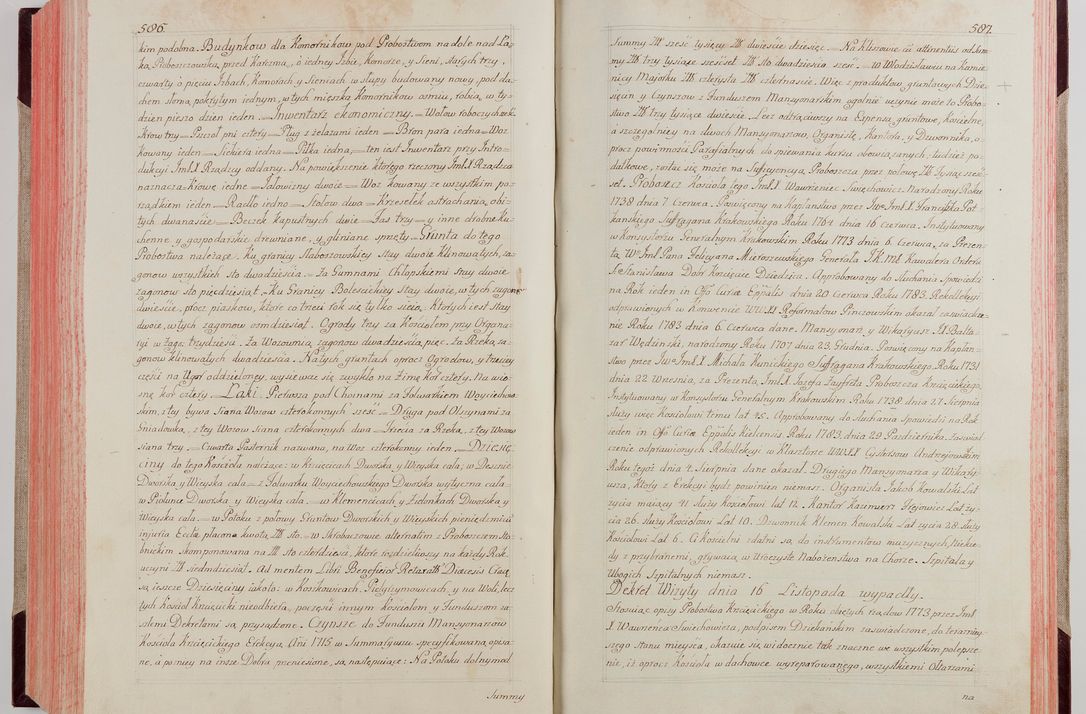 586.
kim podobna. Budynkow dla Komornikow pod Probostwem na dole nad Łą-
ką Proboszczowską, przed karczmą, o iedney Izbie, Komorze, y Sieni, starych trzy,
czwarty o pięciu Izbach, Komorach y Sieniach w słupy budowany nowy, pod da-
chem słomą pokrytym iednym, w tych mieszka Komornikow osmiu, robią w ty-
dzien pieszo dzien ieden. = Inwentarz ekonomiczny. = Wołow roboczych
Krow trzy = Pszczoł pni cztery = Pług z zelazami ieden = Bron para iedna = Woz
kowany ieden = Siekiera iedna = Piłka iedna, = ten iest Inwentarz przy Intro-
dukcyi Jmci X. Rządzcy oddany. Na powiększenie ktorego rzeczony Jmci X. Rządzca
naznacza = Krowę iedne = Jałowizny dwoie = Woz kowany ze wszystkim po-
rządkiem ieden = Radło iedno = Stołow dwa = Krzesełek astrachanią obi-
tych dwanascie = Beczek kapustnych dwie = Fas trzy = y inne drobne ku-
chenne y gospodarskie drewniane, y gliniane sprzęty. = Grunta do tego
Probostwa należące: ku granicy Słaboszowskiey Stay dwoie klinowatych, za-
gonow wszystkich sto dwadziescia. = Za Gumnami Chłopskiemi stay dwoie
zagonow sto piędziesiąt. = Ku Granicy Bolescickiey Stay dwoie, w tych zagonow
dwiescie, procz piaskow, ktore co trzeci rok się tylko sieią. Ktorych iest stay
dwoie, w tych zagonow osmdziesiąt. Ogrody trzy za Kosciołem przy Organa-
ryi w zagon: trzydziesci. Za Wozownią zagonow dwadziescia pięć. Za Rzeką za-
gonow klinowatych dwadziescia. = Na tych gruntach oprocz Ogrodow, y trzeciey
częsci na Ugor oddzieloney, wysiewac się zwykło na Zimę kor: cztery. Na wio-
snę kor: cztery. = Łąki. Pierwsza pod Choinami za Folwarkiem Woyciechow-
skim, z tey bywa Siana Wozow czterokonnych sześc = Druga pod Olszynami za
Gniadowką, z tey Wozow siana czterokonnych dwa = Trzecia za Rzeką, z tey Wozow
siana trzy. = Czwarta Pasternik nazwana, na Woz czterokonny ieden = Dziesię-
ciny do tego Kościoła należące: w Książnicach Dworska y Wieyska cała, w Dessznie
Dworska y Wieyska cała = z Folwarku Woyciechowskiego Dworska wytyczna cała =
w Piołunie Dworska y Wieyska cała = w Klemencicach, y Łedinkach Dworska y
Wieyska cała = w Polaku z połowy Gruntow Dworskich y Wieyskich pieniędzmi cū
injuria Eccla placona kwotą Zł sto. = w Skrobaczowie alternatim z Proboszczem Sto-
bnickim skomponowana na Zł sto czterdziesci, ktore rozdzieliwszy na każdy Rok
uczyni Zł siedmdziesiąt. Ad mentem Libri Beneficior: Retaxatt: Diæcesis Crac:
są ieszcze Dziesięciny iakoto: w Koszkowicach, Pietzszymowicach, y na Woli, lecz
tych Kosciół Książnicki nieodbiera, poczęści innym Kościołom, y Funduszom za-
szłemi Dekretami są przysądzone. Czynsze do Funduszu Mansyonarzow
Kościoła Książnickiego Erekcyą Ani 1715 w Summariuszu specyfikowaną opisa-
ne, a pozniey na insze Dobra przeniesione, są następuiące: Na Polaku dolnym od
Summy
587.
Summy Zł sześć tysięcy Zł dwiescie dziesięc. = Na Kliszowie cū attinentiis od Sum-
my Zł trzy tysiące sześćset Zł sto dwadziescia sześć. = w Włodzisławiu na Kamie-
nicy Majorku Zł czterysta Zł czternascie. Więc z produktow gruntowych Dzie-
sięcin y Czynszow z Funduszem Mansyonarskim ogolnie uczynić może to Probo-
stwo Zł trzy tysiące dwiescie. Lecz odtrąciwszy na Expensa gruntowe, kościelne,
a szczegolniey na dwoch Mansyonarzow, Organistę, Kantora, y Dzwonnika, o-
procz powinnosci Parafialnych do spiewania kursu obowiązanych, tudziesz po-
datkowe, zostać się może na Sufficyencyą Proboszcza przez połowę Zł tysiąc sześć
set. Proboszcz Kościoła tego Jmci X. Wawrzeniec Swiechowicz, Narodzony Roku
1738 dnia 7 Czerwca. Poswięcony na Kapłanstwo przez Jw Jmci X. Franciszka Pot-
kanskiego Suffragana Krakowskiego Roku 1764 dnia 16 Czerwca. Instytuowany
w Konsystorzu Generalnym Krakowskim Roku 1773 dnia 6. Czerwca, za Prezen-
tą W Jmci Pana Felicyana Mieroszewskiego Generała J.K.Mci Kawalera Orderu
S. Stanisława Dobr Książnice Dziedzica. Approbowany do Słuchania Spowiedzi
na Rok ieden in Offo Curiæ Eppalis dnia 20 Czerwca Roku 1783. Rekollekcyi
odprawionych w Konwencie WW. XX. Reformatow Pinczowskim okazał zaswiadcze-
nie Roku 1783 dnia 6. Czerwca dane. Mansyonarz, y Wikaryusz X. Balta-
zar Wędzinski, narodzony Roku 1707 dnia 23 Grudnia. Poswięcony na Kapłan-
stwo przez Jw Jmci X. Michała Kunickiego Suffragana Krakowskiego Roku 1731
dnia 22. Wrzesnia, za Prezentą Jmci X. Jozefa Zayfreta Proboszcza Książnickiego
Instytuowany w Konsystorzu Generalnym Krakowskim Roku 1738. dnia 27. Sierpnia
służy więc Kościołowi temu lat 45. Approbowany do słuchania Spowiedzi na Rok
ieden in Offo Curiæ Eppalis Kielcensis Roku 1783, dnia 29. Pazdziernika. Zaswiad-
czenie odprawionych Rekollekcyi w Klasztorze WW. XX. Cystersow Andrzejowskim
Roku tegoż dnia 7. Sierpnia dane okazał. Drugiego Mansyonarza y Wikary-
usza, Ktory z Erekcyi bydz powinien niemasz. Organista Jakob Kowalski Lat
życia maiący 41. służy Kościołowi lat 12. Kantor Kazimierz Stejowicz Lat ży-
cia 26. Służy Kościołowi Lat 10. Dzwonnik Klemen Kowalski Lat życia 28. służy
Kościołowi Lat 6. Ci Kościelni zdatni są do instrumentow muzycznych, Niekie-
dy z przybranemi, grywaią w Uroczyste Nabożenstwa na Chorze. Szpitala y
Ubogich Szpitalnych niemasz.
Dekret Wizyty dnia 16 Listopada wypadły.
Stosuiąc opisy Probostwa Książnickiego w Roku obiętych rządow 1773 przez Jmci
X. Wawrzenca Swiechowicza, podpisem Dziekanskim zaswiadczone, do terazniey-
szego stanu mieysca, okazuie się widocznie tak znaczne we wszystkim polepsze-
nie, iż oprocz Kościoła w dachowce wyreparowanego, wszystkiemi Ołtarzami
na